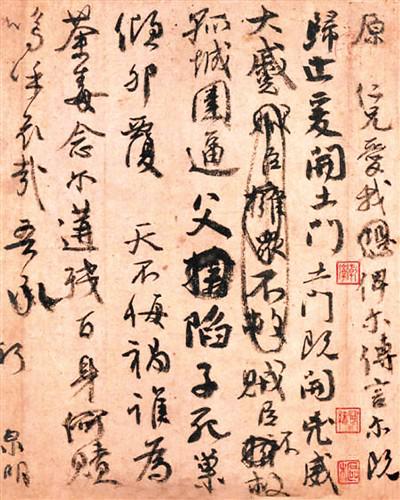 原 仁兄愛我 俾爾傳言 爾既
歸止 爰開土門 土門既開 凶威
大蹙 賊臣擁眾不救 賊臣不擁救
孤城圍逼 父擒陷子死 巢
傾卵覆 天不悔禍 誰為
荼毒 念爾遘殘 百身何贖
嗚呼哀哉 吾承
泉明